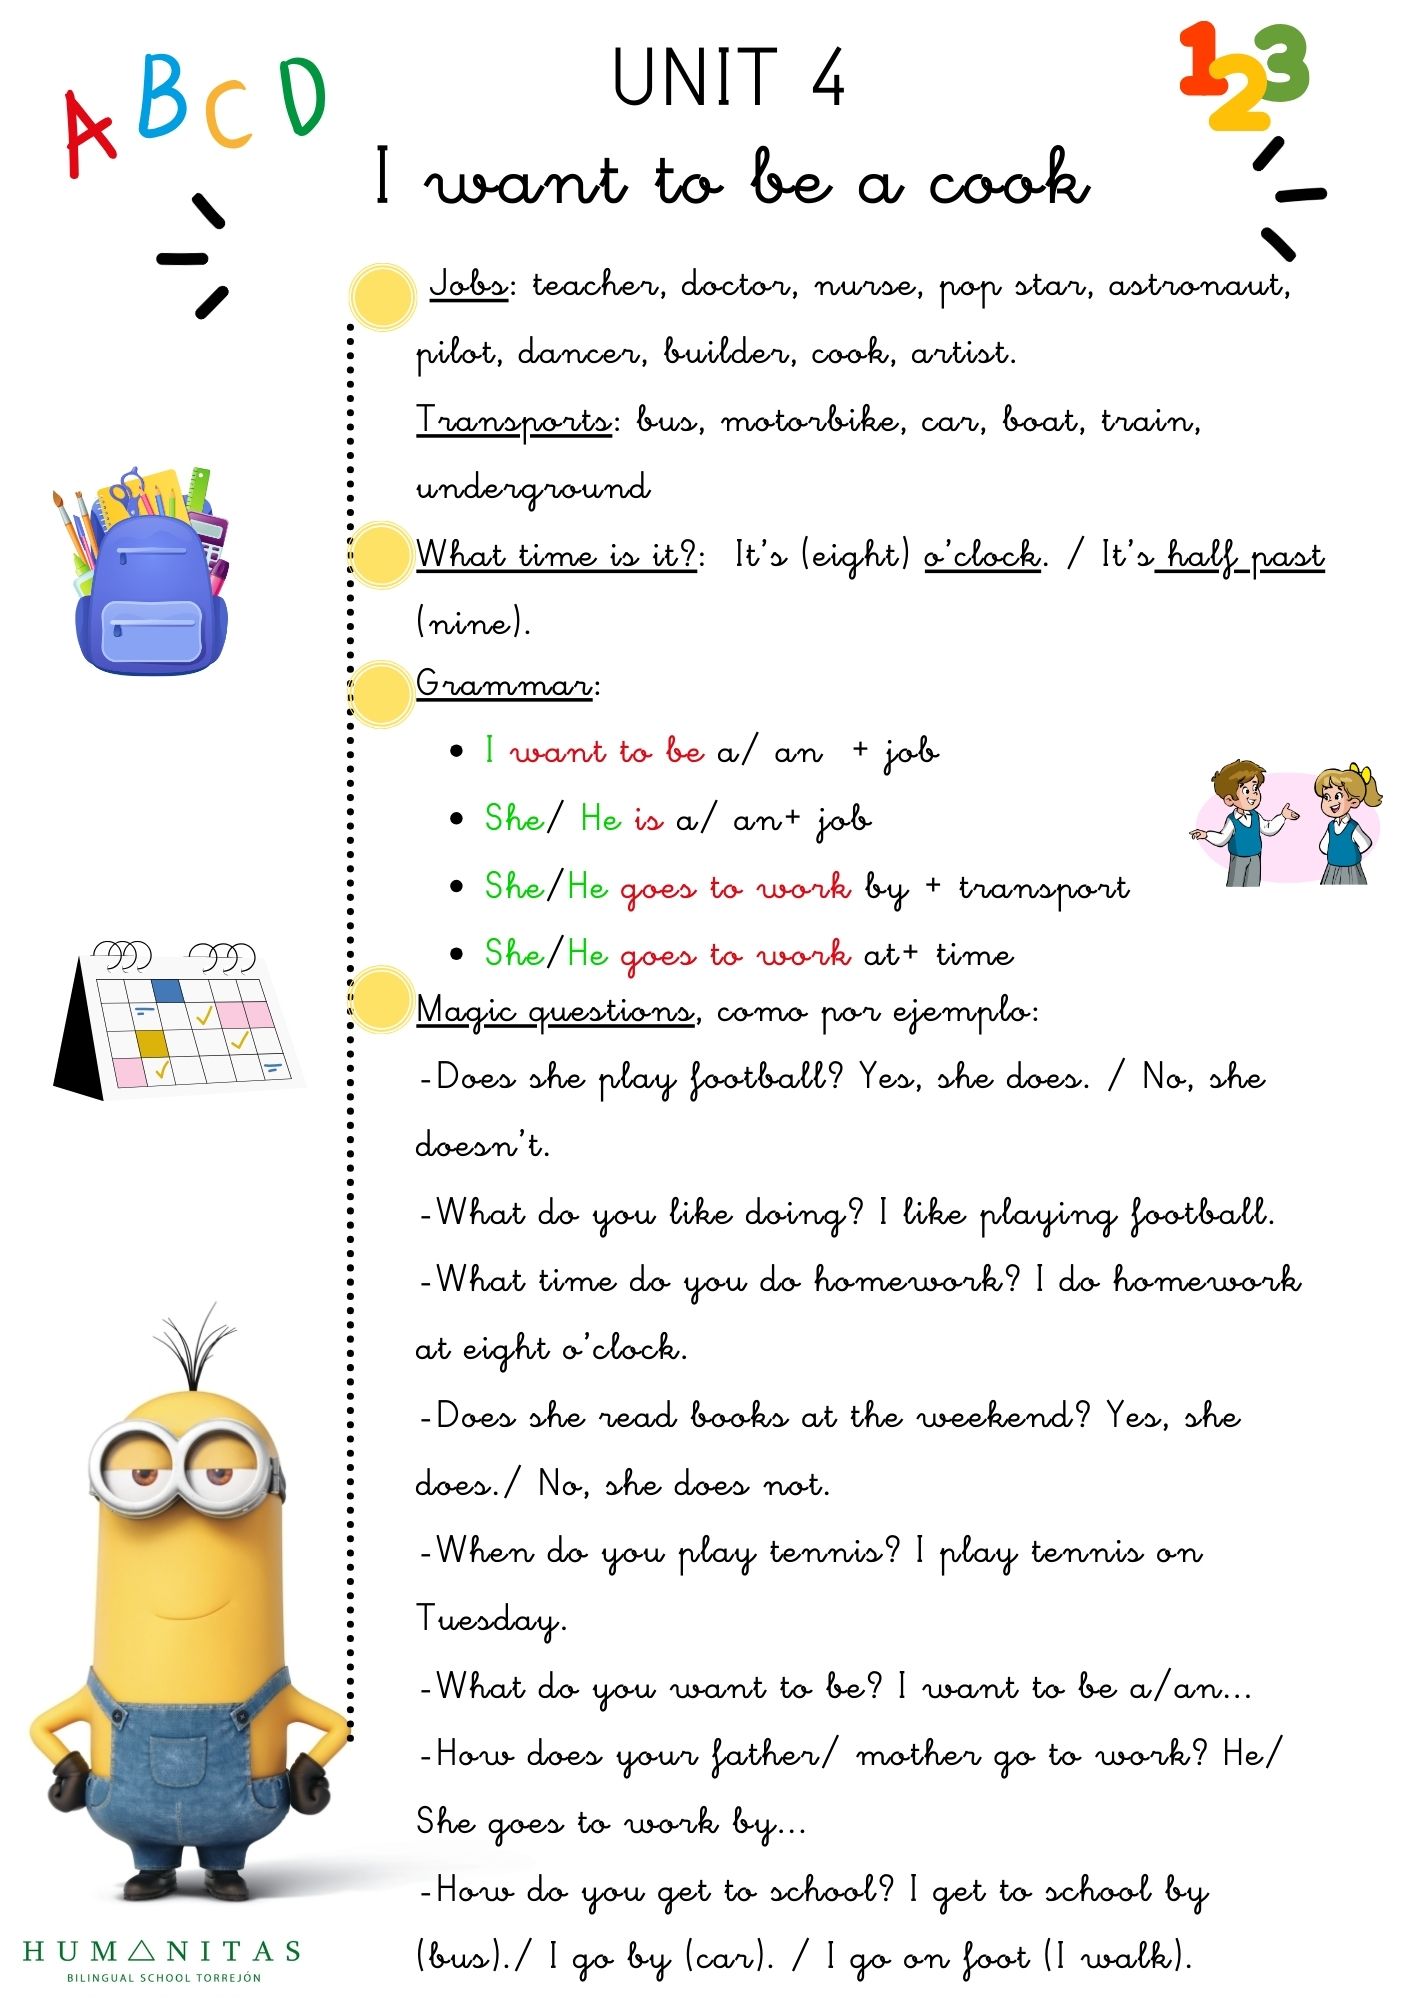 A B C D
UNIT 4
123
I want to be a cook
Jobs: teacher, doctor, nurse, pop star, astronaut,
pilot, dancer, builder, cook, artist.
Transports: bus, motorbike, car, boat, train,
underground
What time is it?: It's (eight) o'clock. / It's half past
(nine).
Grammar:
• I want to be a/ an + job
• She/ He is a/ an+ job
• She/He goes to work by + transport
• She/He goes to work at+ time
Magic questions, como por ejemplo:
-Does she play football? Yes, she does. / No, she
doesn't.
-What do you like doing? I like playing football.
-What time do you do homework? I do homework
at eight o'clock.
-Does she read books at the weekend? Yes, she
does./ No, she does not.
-When do you play tennis? I play tennis on
Tuesday.
-What do you want to be? I want to be a/an...
-How does your father/ mother go to work? He/
She goes to work by...
-How do you get to school? I get to school by
(bus)./ I go by (car). / I go on foot (I walk).
HUMANITAS
BILINGUAL SCHOOL TORREJÓN